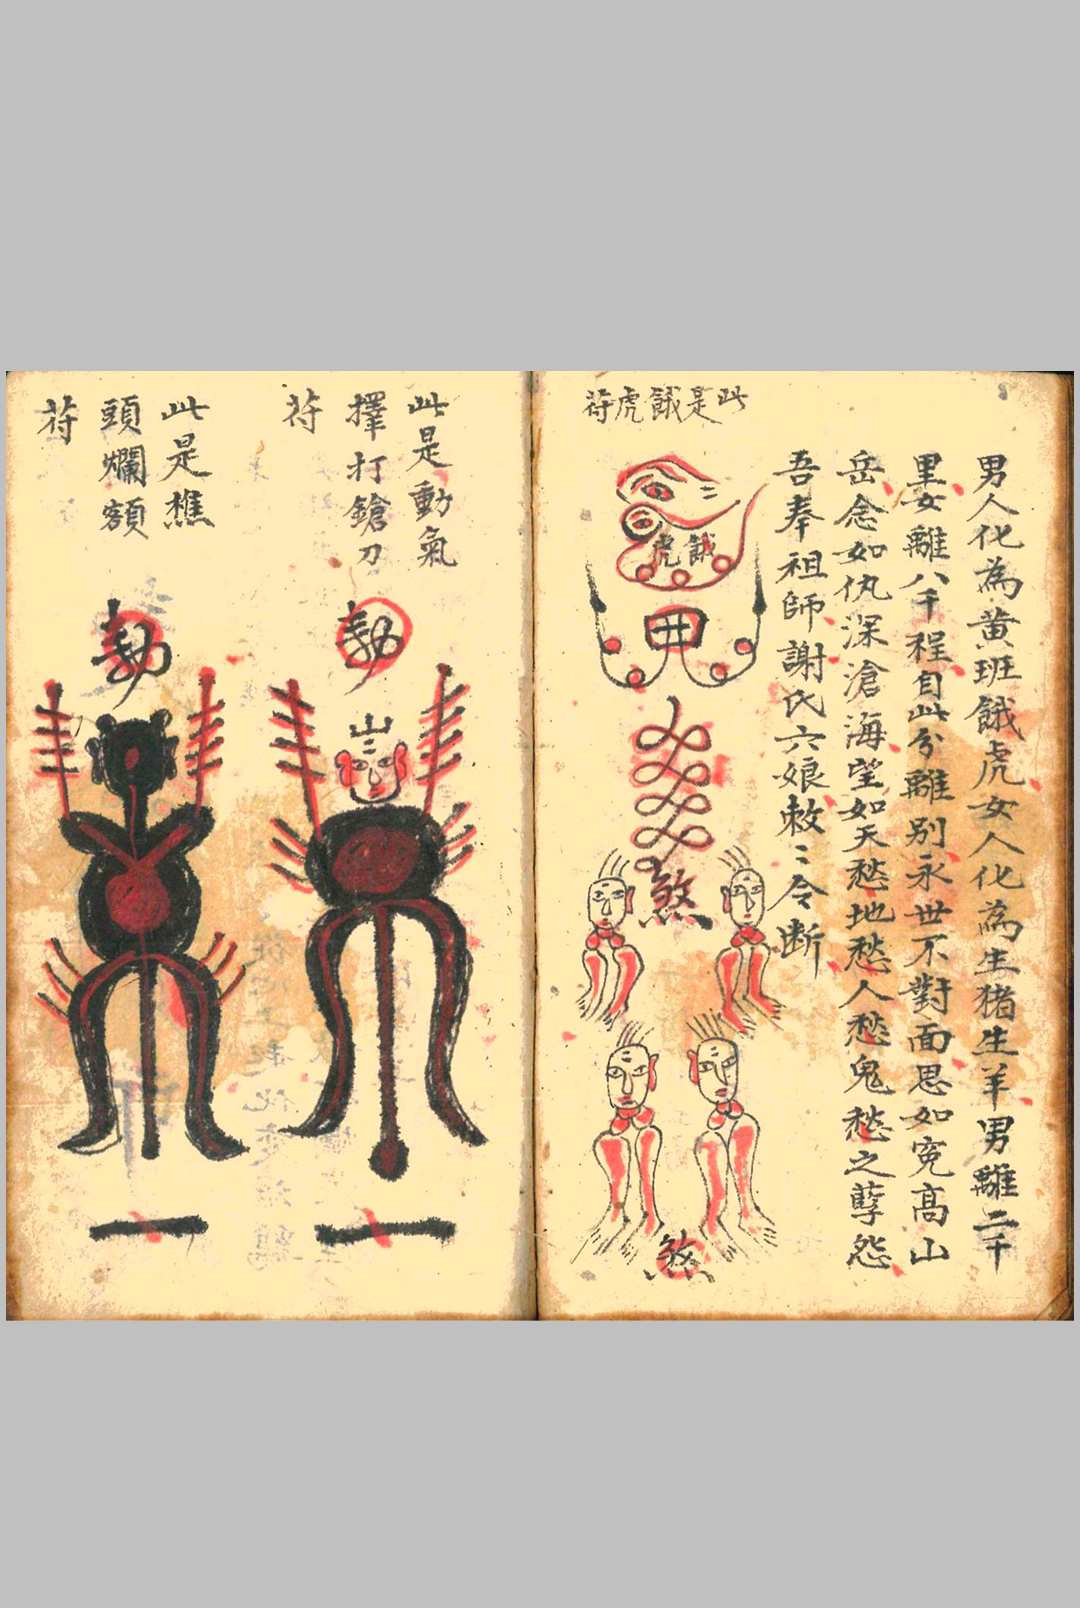 男人化為黄班餓虎女人化為生猪生羊男離二千
里女離八千程自此分離別永世不對面思如寃高山
岳念如仇深滄海望如天愁地愁人愁鬼愁之孽怨
吾奉祖師謝氏六娘敕〻令断
此是餓虎苻
餓虎
煞
煞
此是動氣
擇打鎗刀
苻
勅
此是樵
頭爛額
苻
勅